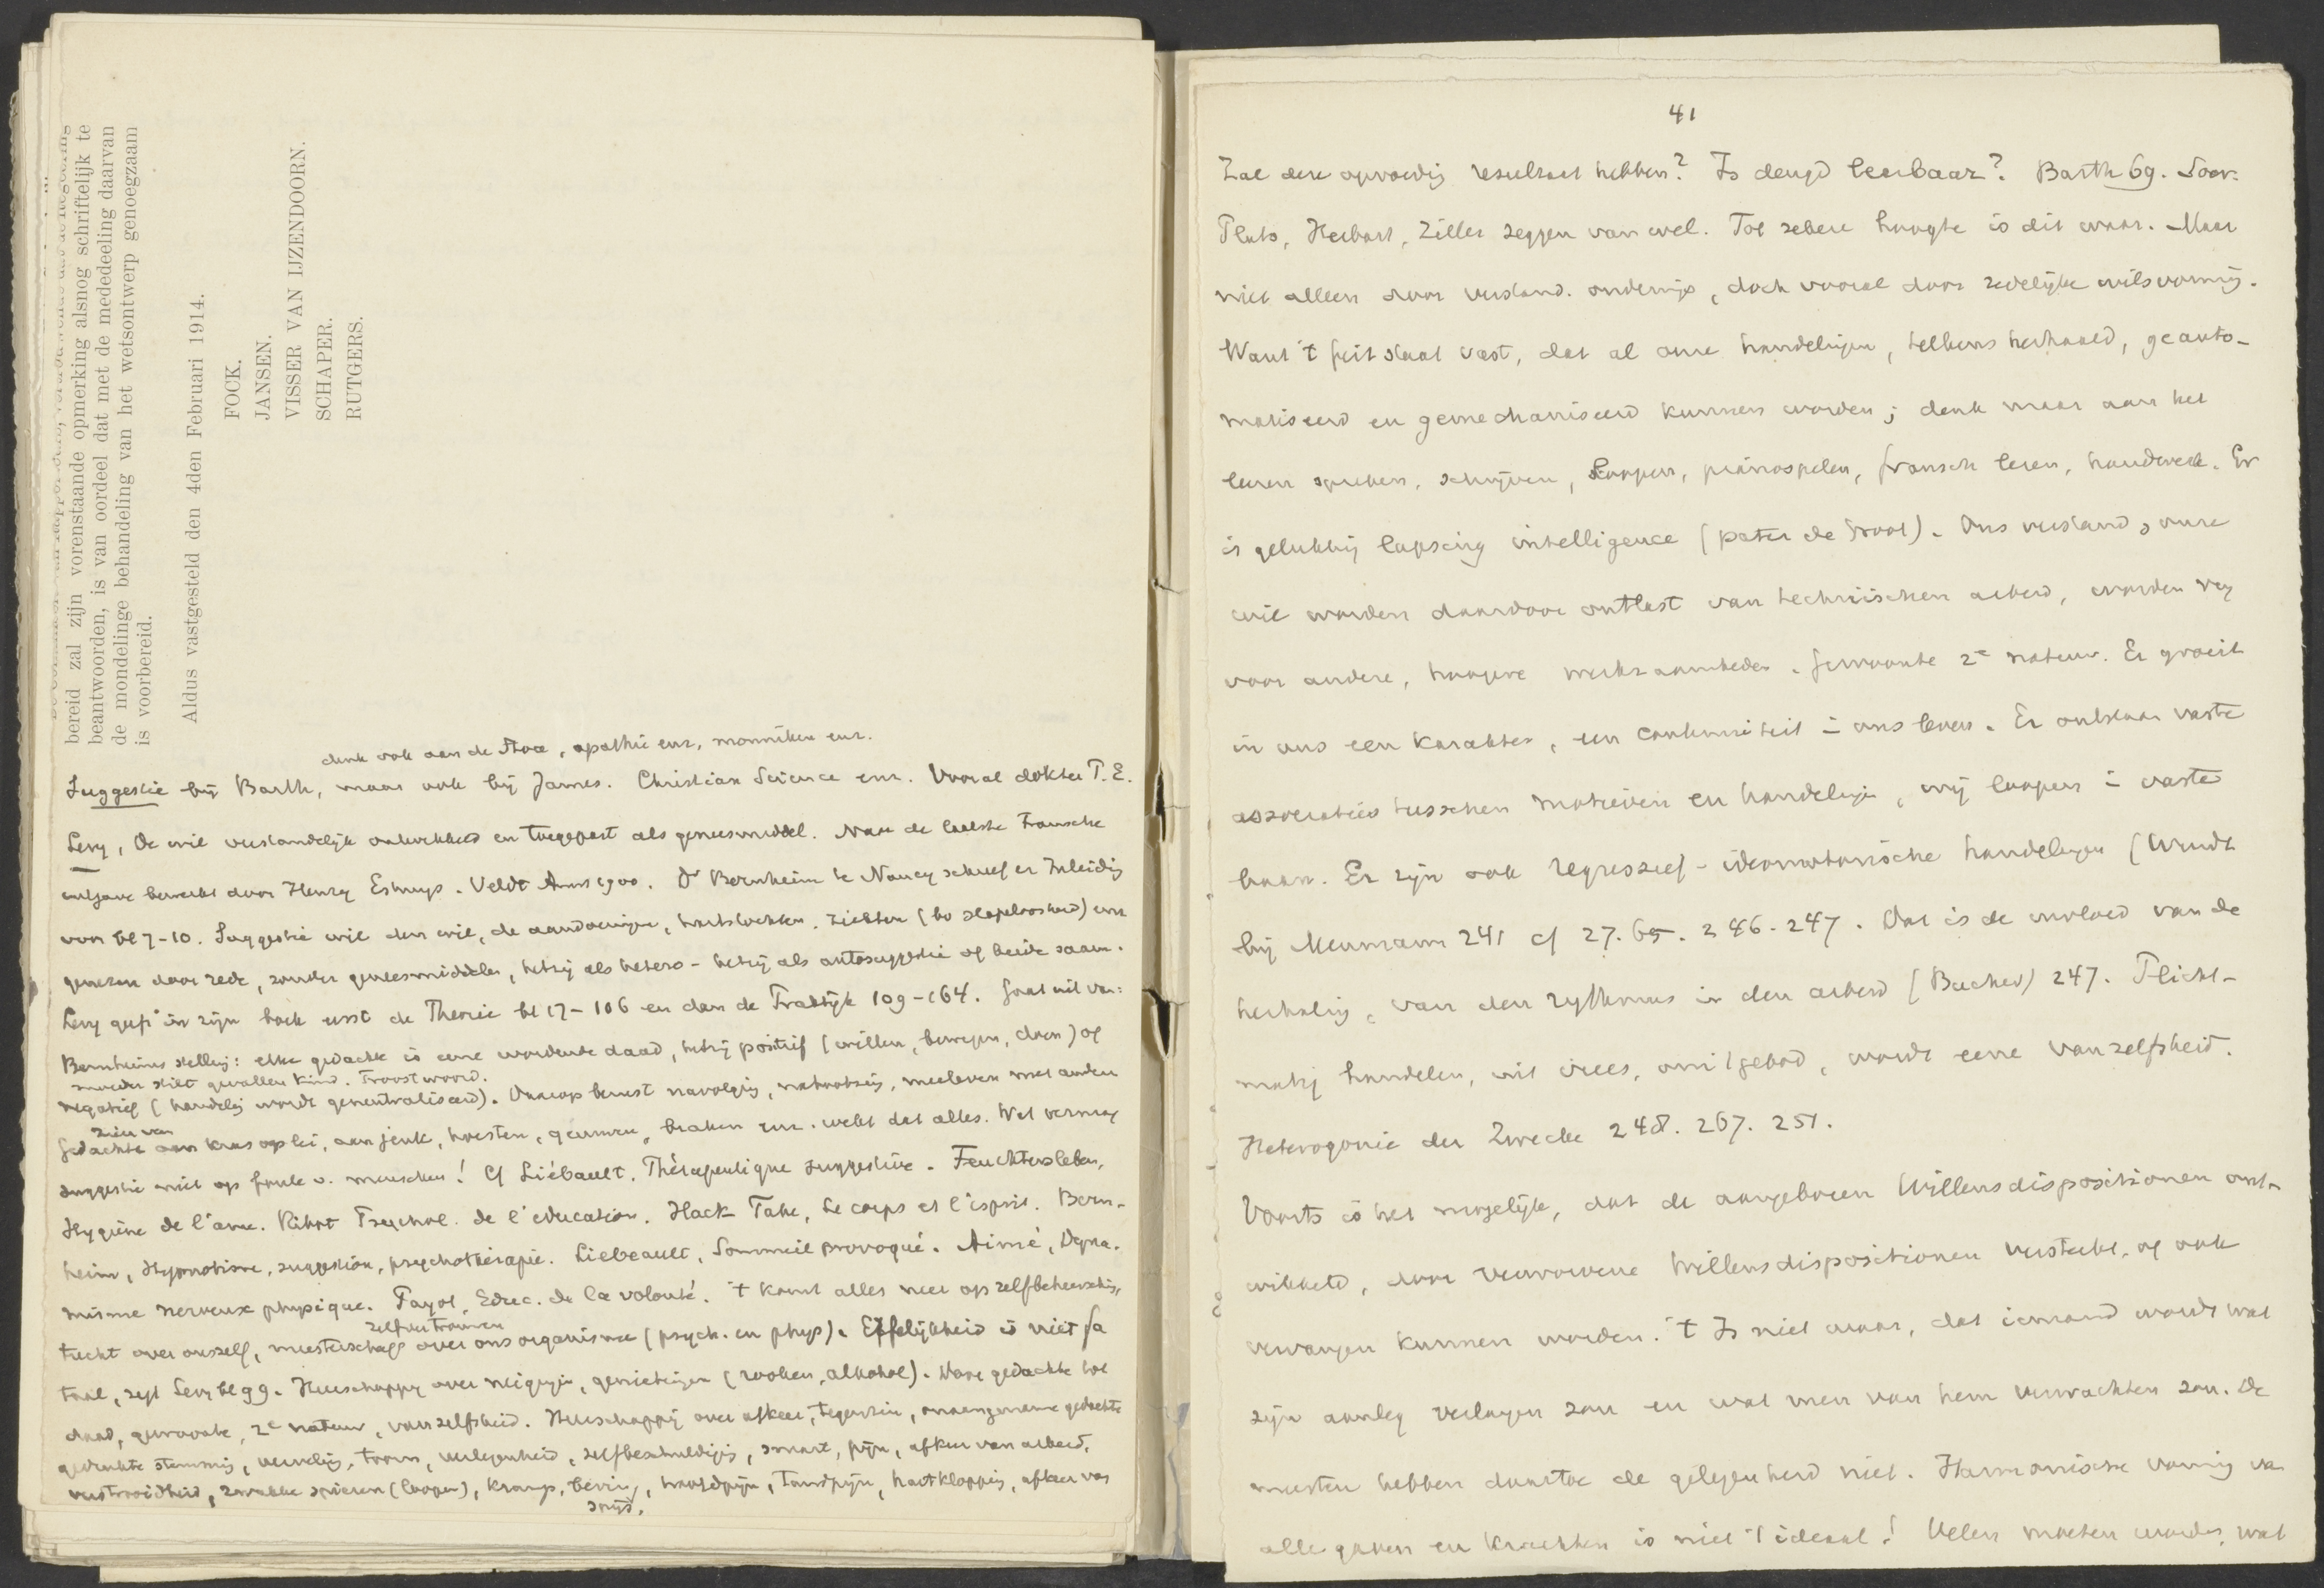 bereid zal zijn vorenstaande opmerking alsnog schriftelijk te
beantwoorden, is van oordeel dat met de mededeeling daarvan
de mondelinge behandeling van het wetsontwerp genoegzaam
is voorbereid.
Aldus vastgesteld den 4den Februari 1914.
FOCK.
JANSEN.
VISSER VAN IJZENDOORN.
SCHAPER.
RUTGERS.
denk ook aan de Stoa, apathie enz, monniken enz.
Suggestie bij Barth, maar ook bij James. Christian Science enz. Vooral dokter P. E.
Levy, De wil verstandelijk ontwikkeld en toegepast als geneesmiddel. Naar de laatste Fransche
uitgave bewerkt door Henry Eshuys. Veldt Amst 1900. Dr Bernheim te Nancy schreef er Inleidig
voor bl 7-10. Suggestie wil den wil, de aandoeningen, hartstochten, ziekten (bv slapeloosheid) enz
genezen door rede, zonder geneesmiddelen, hetzij als hetero- hetzij als autosuggestie of beide saam.
Levy geeft in zijn boek eerst de Theorie bl 17-106 en dan de Praktijk 109-164. Gaat uit van:
Bernheims stellig: elke gedachte is eene wordende daad, hetzij positief (willen, bewegen, doen) of
moeder stilt gevallen kind. Troostwoord.
negatief (handelig wordt geneutraliseerd). Daarop berust navolgig, nabootsig, meeleven met anderen
zien van
Gedachte aan kras op lei, aan jeuk, hoesten, geeuwen, braken enz. wekt dat alles. Wat vermag
suggestie niet op foule v. menschen! Cf Liébault, Thérapeutique suggestive. Feuchtersleben,
Hygiène de l'ame. Ribot Psychol. de l'education. Hack Tuke, Le corps et l'esprit. Bern-
heim, Hypnotisme, suggestion, psychotherapie. Liebeault, Sommeil provoqué. Aimé, Dyna-
misme nerveux physique. Payot, Educ. de la volonté. 't komt alles neer op zelfbeheerschig,
zelfvertrouwen
tucht over onszelf, meesterschap over ons organisme (psych. en phys). Erfelijkheid is niet fa
taal, zegt Levy bl 99. Heerschappy over neigingen, genietingen (rooken, alkohol). Ware gedachte tot
daad, gewoonte, 2e natuur, vanzelfsheid. Heerschappij over afkeer, tegenzin, onaangename gedachte
gedrukte stemmig, vervelig, toorn, verlegenheid, zelfbeschuldigig, smart, pijn, afkeer van arbeid,
verstrooidheid, zwakke spieren (loopen), kramp, bevig, hoofdpijn, tandpijn, hartkloppig, afkeer van
spijs.
41
Zal deze opvoedig resultaat hebben? Is deugd leerbaar? Barth 69. Socr.
Plato, Herbart, Ziller zeggen van wel. Tot zekere hoogte is dit waar. Maar
niet alleen door verstand. onderwijs, doch vooral door zedelijke wilsvormig.
Want 't feit staat vast, dat al onze handelingen, telkens herhaald, geauto-
matiseerd en gemechaniseerd kunnen worden; denk maar aan het
leeren spreken, schrijven, loopen, pianospelen, fransch lezen, handwerk. Er
is gelukkig lapsing intelligence (pater de Groot). Ons verstand, onze
wil worden daardoor ontlast van technischen arbeid, worden vrij
voor andere, hoogere werkzaamheden. Gewoonte 2e natuur. Er groeit
in ons een karakter, een continuiteit in ons leven. Er ontstaan vaste
associaties tusschen motieven en handelingen, wij loopen in vaste
baan. Er zijn ook regressief-ideomotorische handelingen (Wundt
bij Meumann 241 cf 27. 65. 246. 247. Dat is de invloed van de
herhalig, van den rythmus in den arbeid (Bücher) 247. Plicht-
matig handelen, uit vrees, om 't gebod, wordt eene vanzelfsheid.
Heterogonie der Zwecke 248. 267. 251.
Voorts is het mogelijk, dat de aangeboren Willensdispositionen ont-
wikkeld, door verworvene Willensdispositionen versterkt, of ook
vervangen kunnen worden. 't Is niet waar, dat iemand wordt wat
zijn aanleg verlangen zou en wat men van hem verwachten zou. De
meesten hebben daartoe de gelegenheid niet. Harmonische vormig van
alle gaven en krachten is niet 't ideaal! Velen moeten worden, wat